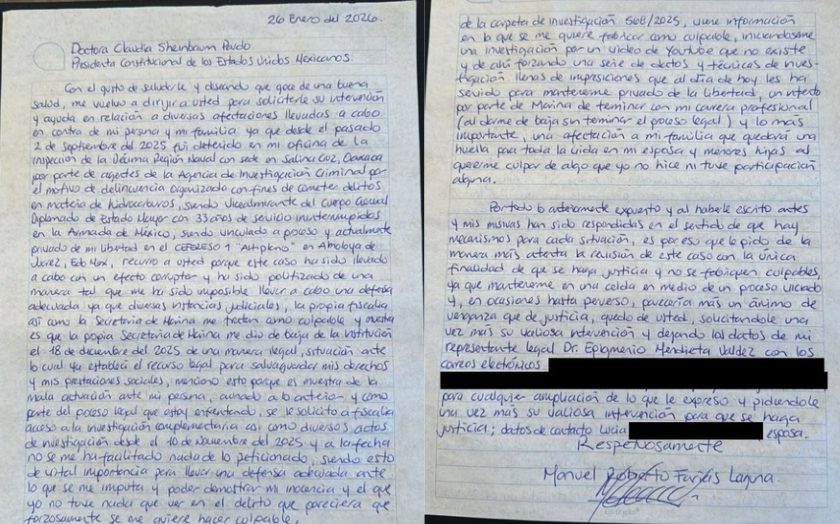 26 Enero del 2026.
Doctora Claudia Sheinbaum Pardo.
Presidenta Constitucional de los Estados Unidos Mexicanos.
Con el gusto de saludarle y deseando que goce de una buena
salud, me vuelvo a dirigir a usted para solicitarle su intervención
y ayuda en relación a diversas afectaciones llevadas a cabo
en contra de mi persona y mi familia ya que desde el pasado
2 de septiembre del 2025 fui detenido en mi oficina de la
Inspección de la Décima Región Naval con sede en Salina Cruz, Oaxaca
por parte de agentes de la Agencia de Investigación Criminal por
el motivo de delincuencia organizada con fines de cometer delitos
en materia de hidrocarburos, siendo Vicealmirante del Cuerpo General
Diplomado de Estado Mayor con 33 años de servicio ininterrumpidos
en la Armada de México, siendo vinculado a proceso y actualmente
privado de mi libertad en el CEFERESO 1 "Altiplano" en Almoloya de
Juárez, Edo Mex, recurro a usted porque este caso ha sido llevado
a cabo con un efecto corruptor y ha sido politizado de una
manera tal que me ha sido imposible llevar a cabo una defensa
adecuada ya que diversas instancias judiciales, la propia fiscalía
así como la Secretaría de Marina me tratan como culpable y muestra
es que la propia Secretaría de Marina me dio de baja de la institución
el 18 de diciembre del 2025 de una manera ilegal, situación ante
lo cual ya establecí el recurso legal para salvaguardar mis derechos
y mis prestaciones sociales, menciono esto porque es muestra de la
mala actuación ante mi persona, aunado a lo anterior y como
parte del proceso legal que estoy enfrentando, se le solicitó a fiscalía
acceso a la investigación complementaria así como diversos actos
de investigación desde el 10 de Noviembre del 2025 y a la fecha
no se me ha facilitado nada de lo peticionado, siendo esto
de vital importancia para llevar una defensa adecuada ante
lo que se me imputa y poder demostrar mi inocencia y el que
yo no tuve nada que ver en el delito que pareciera que
forzosamente se me quiere hacer culpable,
de la carpeta de investigación 568/2025, viene información
en lo que se me quiere fabricar como culpable, iniciándose
una investigación por un video de Youtube que no existe
y de ahí forzando una serie de datos y técnicas de inves-
tigación llenas de impresiones que al día de hoy les ha
servido para mantenerme privado de la libertad, un intento
por parte de Marina de terminar con mi carrera profesional
(al darme de baja sin terminar el proceso legal) y lo más
importante, una afectación a mi familia que quedará una
huella para toda la vida en mi esposa y menores hijas al
quererme culpar de algo que yo no hice ni tuve participación
alguna.
Por todo lo anteriormente expuesto y al haberle escrito antes
y mis misivas han sido respondidas en el sentido de que hay
mecanismos para cada situación, es por eso que le pido de la
manera más atenta la revisión de este caso con la única
finalidad de que se haga justicia y no se fabriquen culpables,
ya que mantenerme en una celda en medio de un proceso viciado
y, en ocasiones hasta perverso, parecería más un ánimo de
venganza que de justicia, quedo de usted, solicitándole una
vez más su valiosa intervención y dejando los datos de mi
representante legal Dr. Epigmenio Mendieta Valdez con los
correos electrónicos
para cualquier ampliación de lo que le expreso y pidiéndole
una vez más su valiosa intervención para que se haga
justicia; datos de contacto Lucia esposa.
Respetuosamente
Manuel Roberto Farías Laguna.